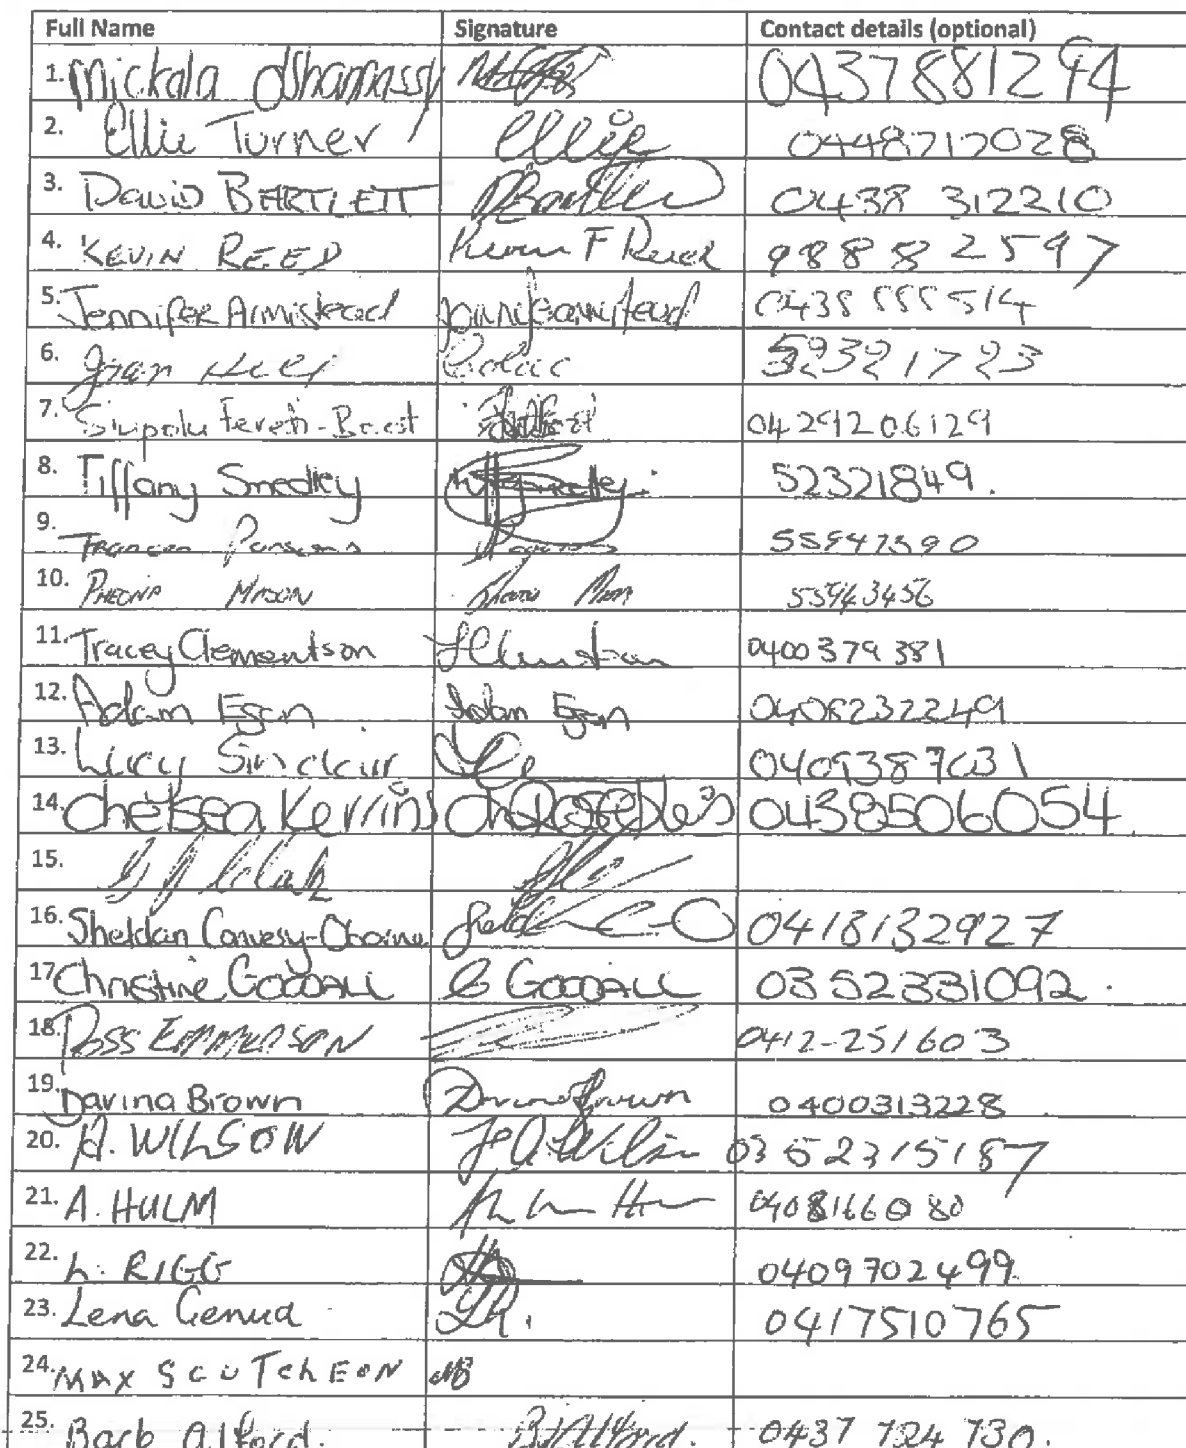 Full Name Signature Contact details (optional)
1. Mickala dshamassy 0437881294
2. Ellie Turner Ellie 0448717028
3. David BARTLETT DBartlett 0438 312210
4. KEVIN REED Kevin F Reed 98882597
5. Jennifer Armistead 0438 555514
6. 52321723
7. Fereti-Beast 0429206129
8. Tiffany Smedley 52321849.
9. Frances Parsons 55947390
10. PHEONA MASON 55943456
11. Tracey Clementson 0400 379 381
12. Adam Egan Adam Egan 0408232249
13. Lucy Sinclair 0409387031
14. Chelsea Kerrins 0438506054
15.
16. Sheldan 0418132927
17 Christine GOODALL C GOODALL 0352331092.
18. ROSS EMMERSON 0412-251603
19. Davina Brown Davina Brown 0400313228
20. A. WILSON A. Wilson 03 52315187
21. A. HULM 0408166080
22. L. RIGG 0409702499.
23. Lena Genua LR. 0417510765
24. MAX SCUTCHEON MB
25. Barb Alford. BJ Alford. 0437 724 730.